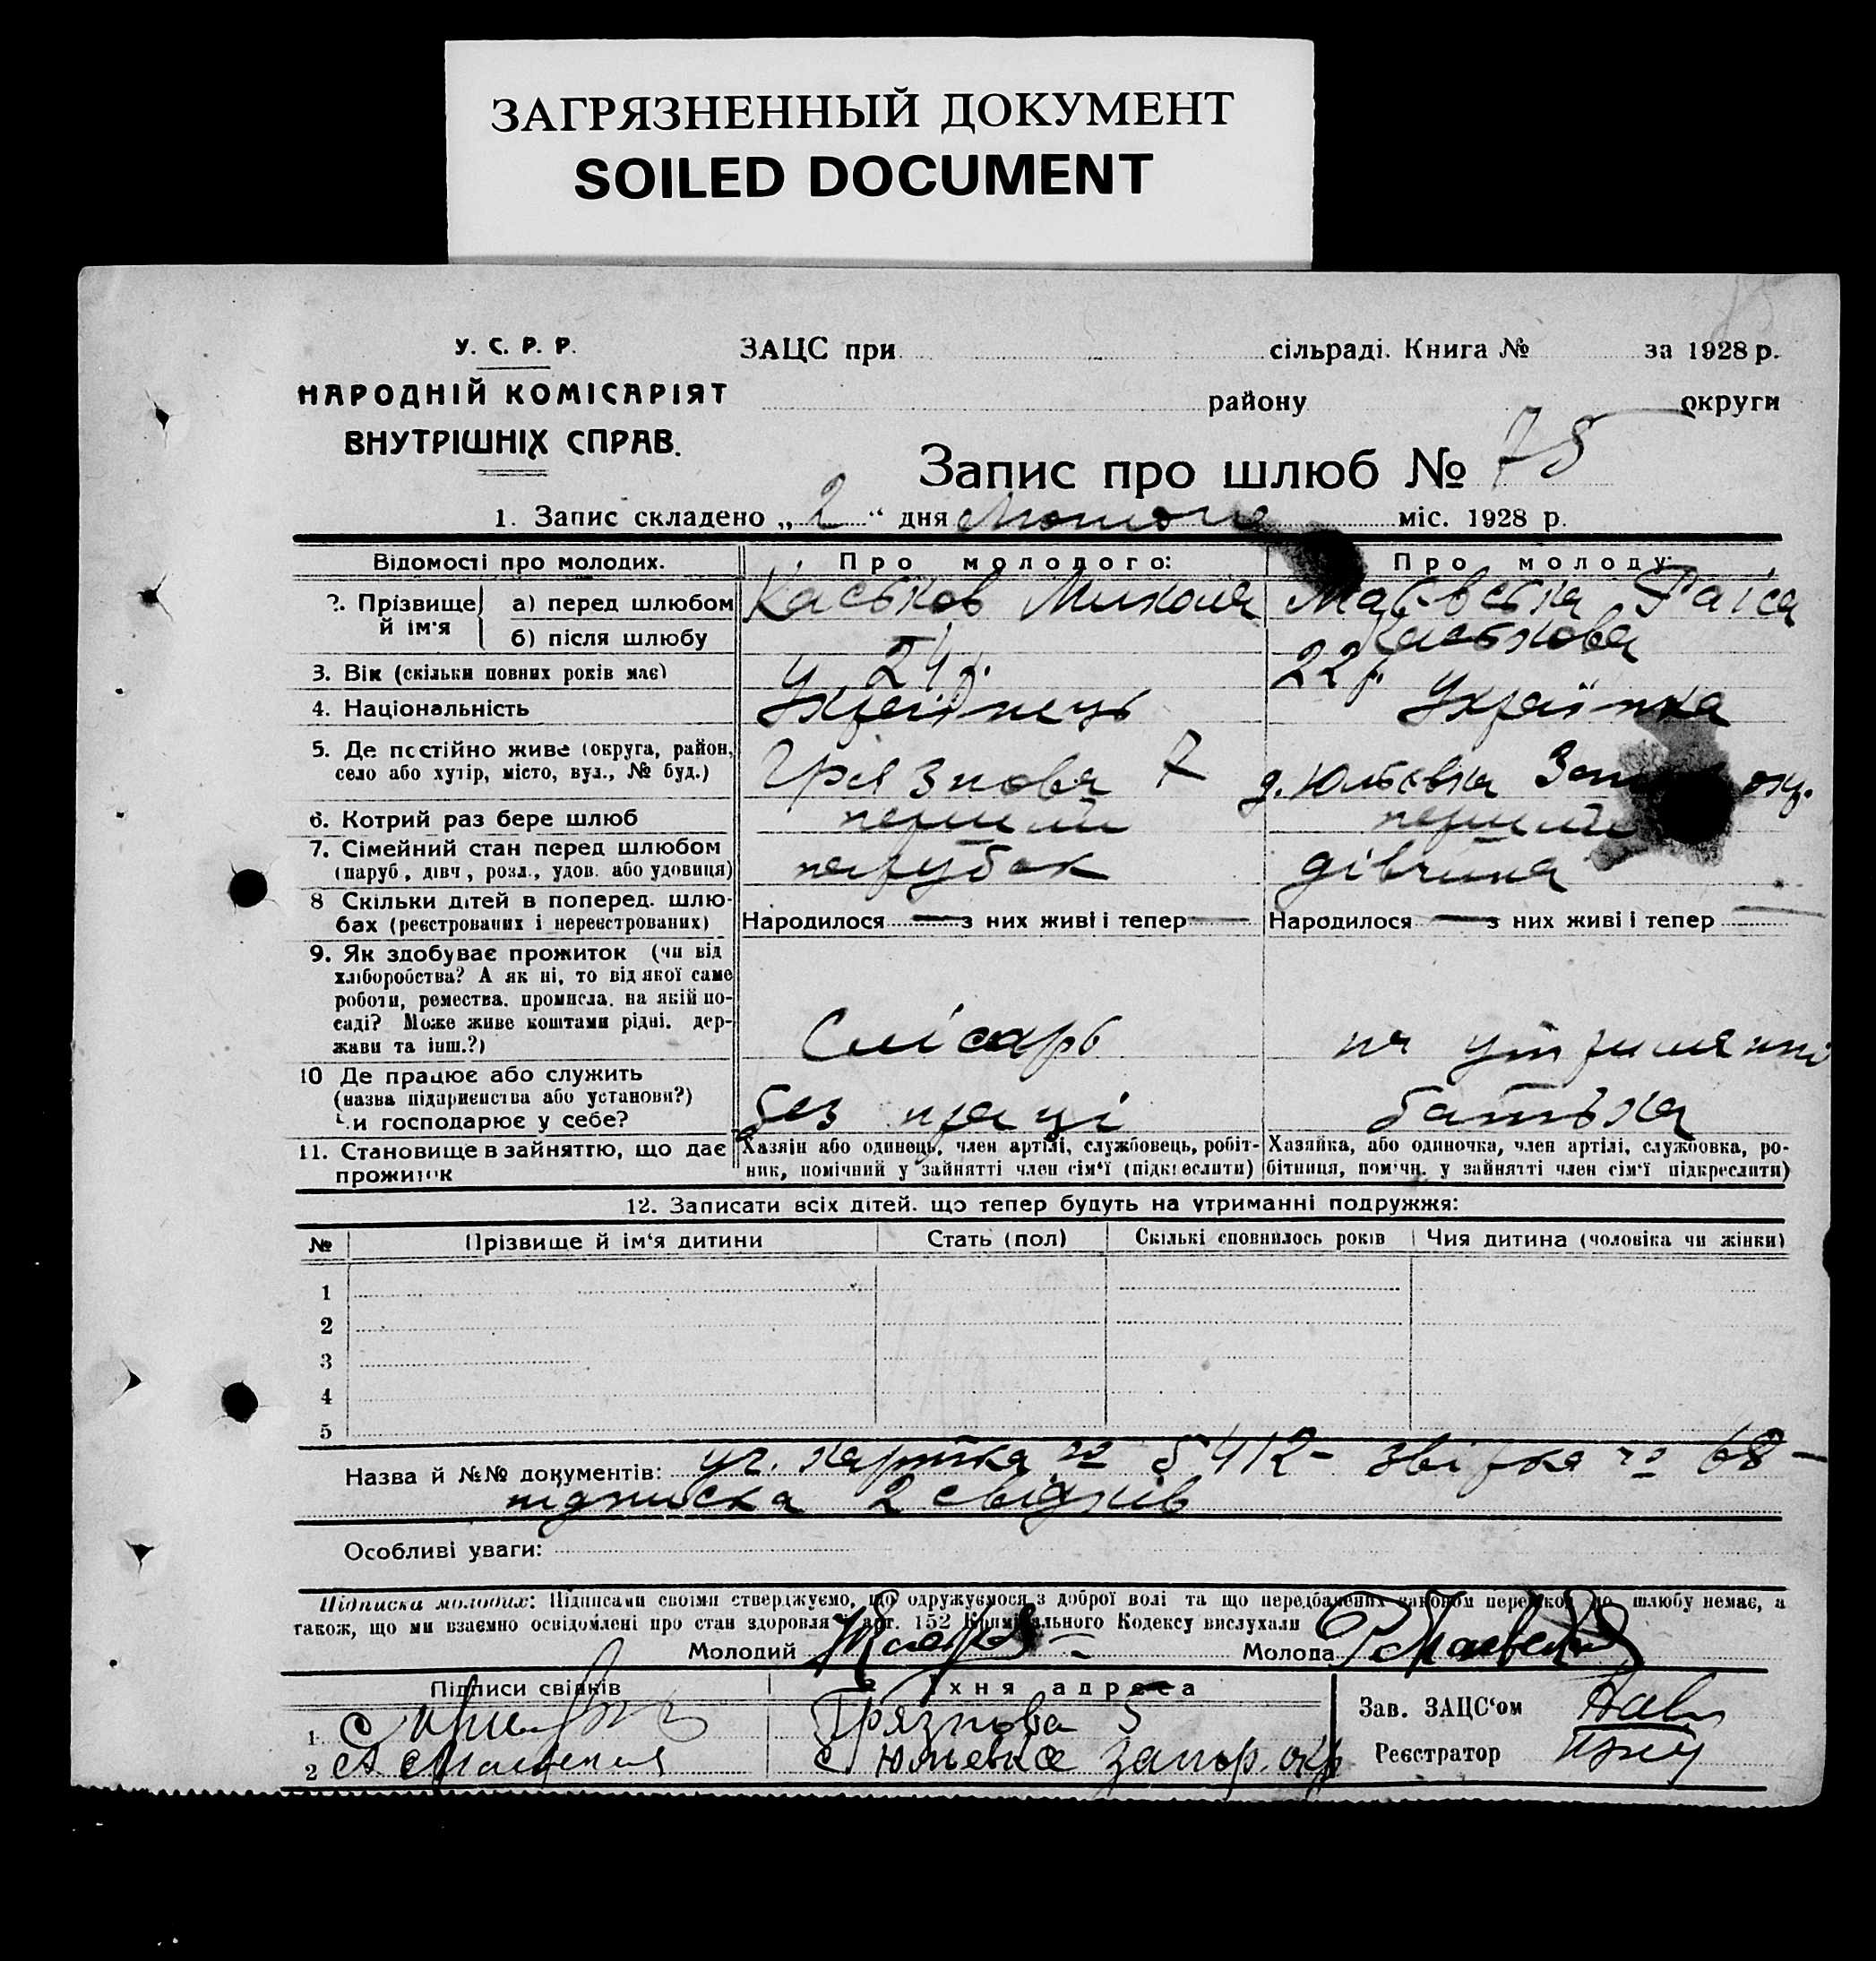 ЗАГРЯЗНЕННЫЙ ДОКУМЕНТ
SOILED DOCUMENT
У. С. Р. Р.
НАРОДНІЙ КОМІСАРІЯТ
ВНУТРІШНІХ СПРАВ.
ЗАЦС при сільраді. Книга № за 1928 р.
району округи
Запис про шлюб № 75
1. Запис складено „2“ дня Лютого міс. 1928 р.
Відомості про молодих. Про молодого: Про молоду:
2. Прізвище й ім'я
а) перед шлюбом Каськов Микола Раїса
б) після шлюбу Каськова
3. Вік (скільки повних років має) 24 р. 22 р.
4. Національність Українець Українка
5. Де постійно живе (округа, район, село або хутір, місто, вул., № буд.) Грязнова 7 окр.
6. Котрий раз бере шлюб перший перший
7. Сімейний стан перед шлюбом
(паруб, дівч, розл., удов. або удовиця) парубок дівчина
8 Скільки дітей в поперед. шлю-
бах (реєстрованих і нереєстрованих) Народилося — з них живі і тепер — Народилося — з них живі і тепер —
9. Як здобуває прожиток (чи від
хліборобства? А як ні, то від якої саме
роботи, ремества, промисла, на якій по-
саді? Може живе коштами рідні, дер-
жави та інш.?) Слісарь на утриманні
10 Де працює або служить
(назва підприємства або установи?)
Чи господарює у себе? без праці батька
11. Становище в зайняттю, що дає
прожиток
Хазяїн або одинець, член артілі, службовець, робіт-
ник, помічний у зайнятті член сім'ї (підкреслити)
Хазяйка, або одиночка, член артілі, службовка, ро-
бітниця, помічн. у зайнятті член сім'ї підкреслити)
12. Записати всіх дітей, що тепер будуть на утриманні подружжя:
№ Прізвище й ім'я дитини Стать (пол) Скількі сповнилось років Чия дитина (чоловіка чи жінки)
1
2
3
4
5
Назва й №№ документів: уч. картка № 5412 - звірка № 68 -
підписка 2 свідків
Особливі уваги:
Підписка молодих: Підписами своїми стверджуємо, що одружуємося з доброї волі та що передбачених законом перешкод до шлюбу немає, а
також, що ми взаємно освідомлені про стан здоровля й арт. 152 Кримінального Кодексу вислухали
Молодий Молода
Підписи свідків Їхня адреса
1. Грязнова 5
2 с Юльевка Запор. окр
Зав. ЗАЦС'ом
Реєстратор